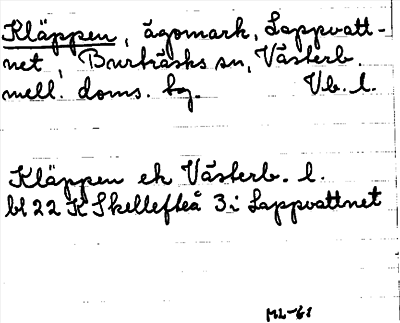 Kläppen, ägomark, Lappvatt-
net, Burträsks sn, Västerb.
mell. doms. bg. Vb. l.
Kläppen ek Västerb. l.
bl 22 K Skellefteå 3 i Lappvattnet